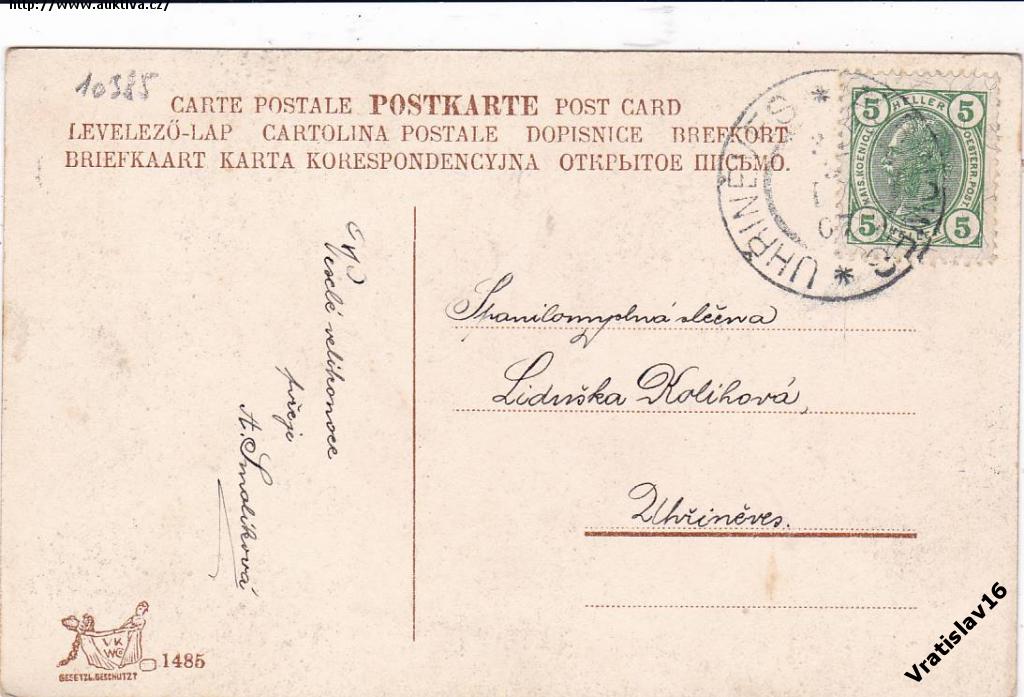 http://www.auktiva.cz/
10385
CARTE POSTALE POSTKARTE POST CARD
LEVELEZŐ-LAP CARTOLINA POSTALE DOPISNICE BREFKORT
BRIEFKAART KARTA KORESPONDENCYJNA ОТКРЫТОЕ ПИСЬМО.
5 HELLER 5
KAIS. KOENIGL. OESTERR. POST.
5 5
UHŘINEVES
07
Veselé velikonoce
přeje
A. Smolíková
Spanilomyslná slečna
Liduška Kolihová,
Uhřiněves.
VK
WCo
GESETZL. GESCHÜTZT
1485
Vratislav16